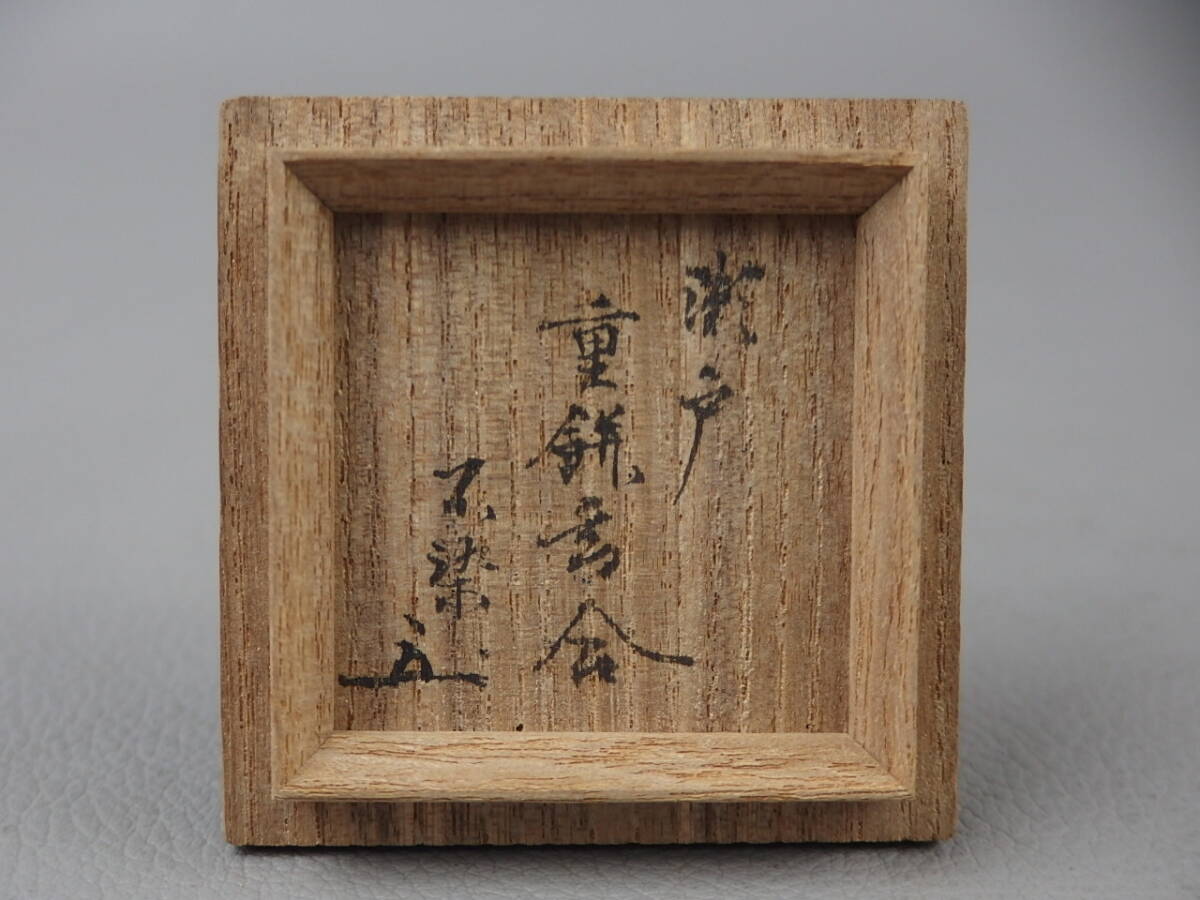 瀬戸
重餅香合
不染